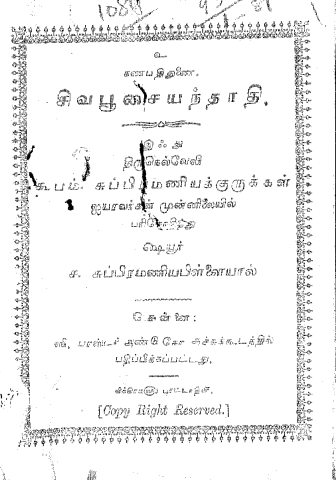 ௨
கணபதிதுணை.
சிவபூசையந்தாதி.
இஃது
திருநெல்வேலி
சுப்பிரமணியக்குருக்கள்
ஐயரவர்கள் முன்னிலையில்
பரிசோதித்து
ஷெயூர்
ச. சுப்பிரமணியபிள்ளையால்
சென்னை:
அண்டு கோ அச்சுக்கூடத்தில்
பதிப்பிக்கப்பட்டது.
[Copy Right Reserved.]